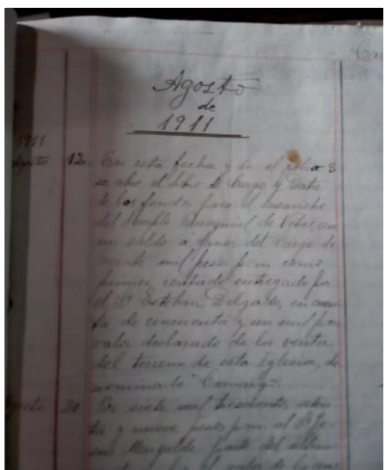 Agosto
de
1911
1911
Agosto 12. En esta fecha y en el folio 3
se abre el libro de Cargo y Data
de los fondos para el ensanche
del Templo parroquial de Vélez, con
un saldo a favor del cargo de
veinte mil pesos p.m. como
primer contado entregado por
el Sr. Esteban Delgado, en cuen
ta de cincuenta y un mil p.m.
valor declarado de la venta
del terreno de esta Iglesia, de
"Camargo"
Agosto 20 Por siete mil trescientos
ta y nueve pesos p.m. al Sr. Jo
sé